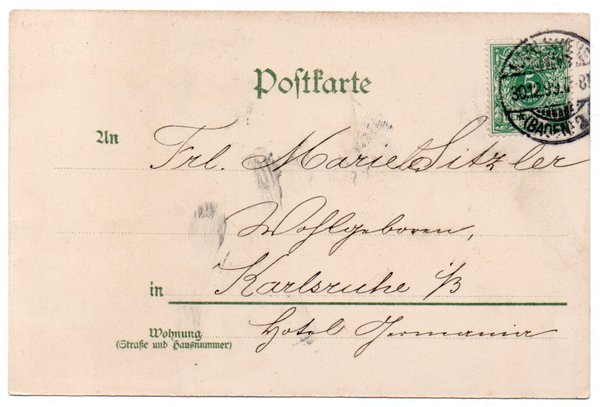 Postkarte
5
30.12.99.
(BADEN) 2
An Frl. Marie Sitzler
Wohlgeboren,
in Karlsruhe i/B
Wohnung Hotel Germania
(Straße und Hausnummer)